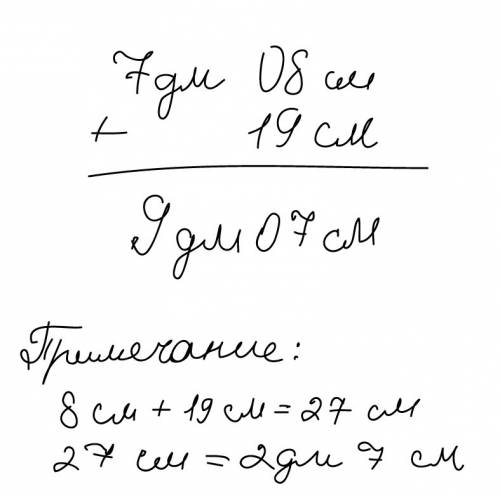 7 дм 08 см
+ 19 см
9 дм 07 см
Примечание:
8 см + 19 см = 27 см
27 см = 2 дм 7 см